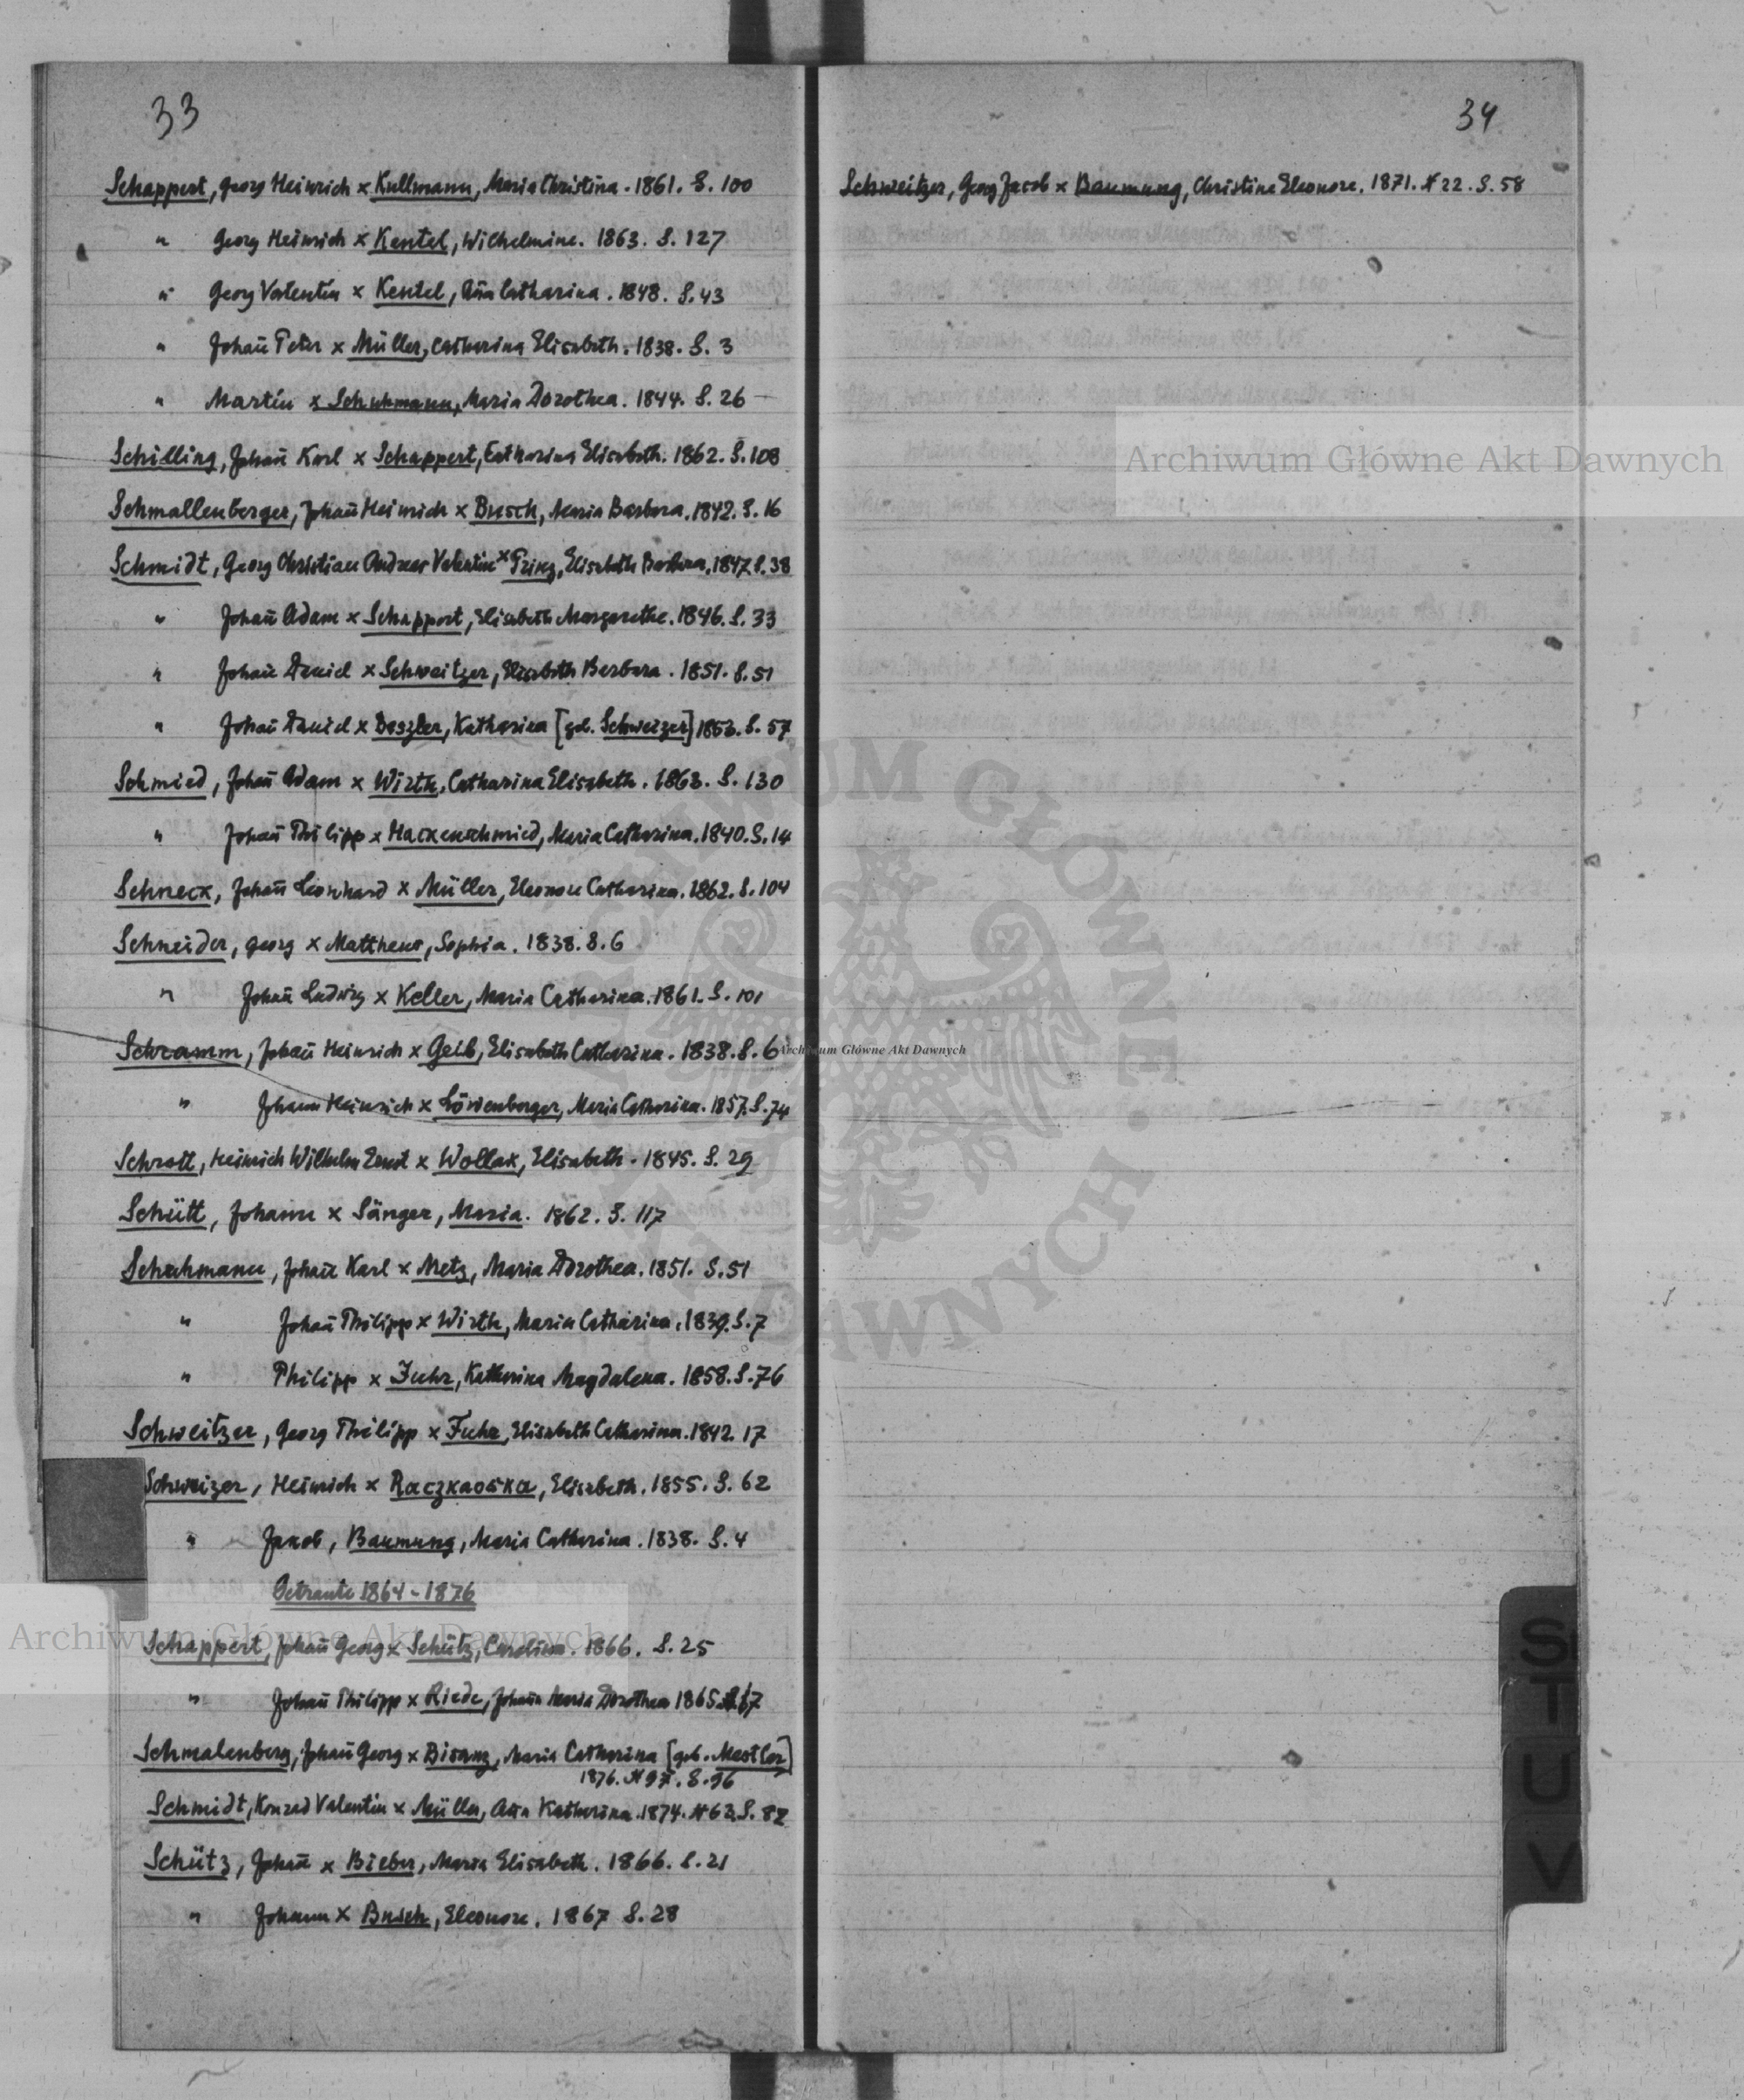 33
Schappert, Georg Heinrich x Kullmann, Maria Christina. 1861. S. 100
" Georg Heinrich x Kentel, Wilhelmine. 1863. S. 127
" Georg Valentin x Kentel, Añа Catharina. 1848. S. 43
" Johañ Peter x Müller, Catharina Elisabeth. 1838. S. 3
" Martin x Schuhmann, Maria Dorothea. 1844. S. 26
Schilling, Johañ Karl x Schappert, Catharina Elisabeth. 1862. S. 108
Schmallenberger, Johañ Heinrich x Busch, Maria Barbara. 1842. S. 16
Schmidt, Georg Christian Andreas Valentin x Prinz, Elisabeth Barbara. 1847. S. 38
" Johañ Adam x Schappert, Elisabeth Margarethe. 1846. S. 33
" Johañ Daniel x Schweitzer, Elisabeth Barbara. 1851. S. 51
" Johañ Daniel x Katharina [geb. Schweizer] 1853. S. 57
Schmied, Johañ Adam x Wirth, Catharina Elisabeth. 1863. S. 130
" Johañ Philipp x Hackenschmied, Maria Catharina. 1840. S. 14
Schneck, Johañ Leonhard x Müller, Eleonore Catharina. 1862. S. 104
Schneider, Georg x Mattheus, Sophia. 1838. S. 6
" Johañ Ludwig x Keller, Maria Catharina. 1861. S. 101
Schramm, Johañ Heinrich x Geib, Elisabeth Catharina. 1838. S. 6
" Johann Heinrich x Löwenberger, Maria Catharina. 1857. S. 74
Schrott, Heinrich Wilhelm Ernst x Wollak, Elisabeth. 1845. S. 29
Schütt, Johann x Sänger, Maria. 1862. S. 117
Schuhmann, Johañ Karl x Metz, Maria Dorothea. 1851. S. 51
" Johañ Philipp x Wirth, Maria Catharina. 1839. S. 7
" Philipp x Fuhr, Katharina Magdalena. 1858. S. 76
Schweitzer, Georg Philipp x Fuhr, Elisabeth Catharina. 1842. 17
Schweizer, Heinrich x Raczkowska, Elisabeth. 1855. S. 62
" Jakob, Baumung, Maria Catharina. 1838. S. 4
Getraute 1864-1876
Schappert, Johañ Georg x Schütz, Carolina. 1866. S. 25
" Johañ Philipp x Riede, Johaña Maria Dorothea 1865.
Schmalenberg, Johañ Georg x Bisanz, Maria Catharina [geb. Mestler]
1876. S. 96
Schmidt, Konrad Valentin x Müller, Aña Katharina. 1874. N 63. S. 82
Schütz, Johañ x Bieber, Maria Elisabeth. 1866. S. 21
" Johann x Busch, Eleonore. 1867 S. 28
34
Schweitzer, Georg Jacob x Baumung, Christine Eleonore. 1871. N 22. S. 58
S
T
U
V
Archiwum Główne Akt Dawnych
Archiwum Główne Akt Dawnych
Archiwum Główne Akt Dawnych
ARCHIWUM GŁÓWNE AKT DAWNYCH